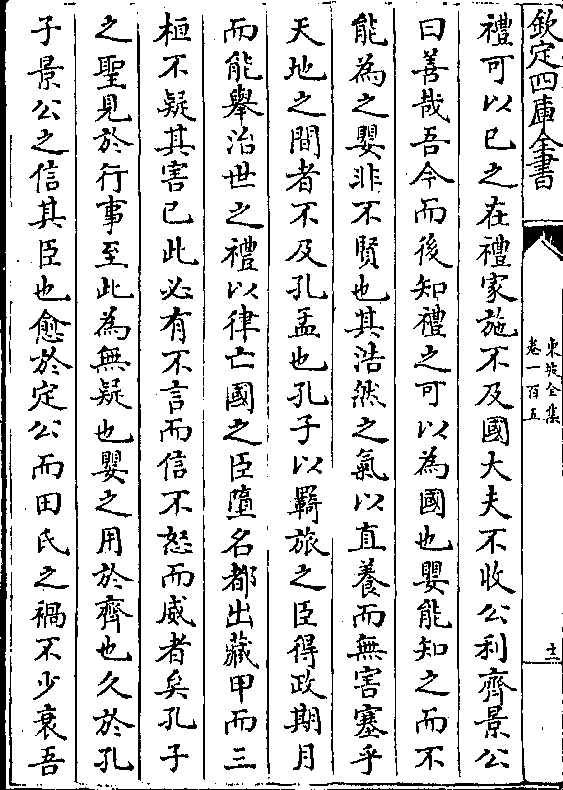 欽定四庫全書
東坡全集
卷一百五
十二
禮可以已之在禮家施不及國大夫不收公利齊景公
曰善哉吾今而後知禮之可以為國也嬰能知之而不
能為之嬰非不賢也其浩然之氣以直養而無害塞乎
天地之間者不及孔孟也孔子以羇旅之臣得政期月
而能舉治世之禮以律亡國之臣墮名都出藏甲而三
桓不疑其害已此必有不言而信不怒而威者矣孔子
之聖見於行事至此為無疑也嬰之用於齊也久於孔
子景公之信其臣也愈於定公而田氏之禍不少衰吾